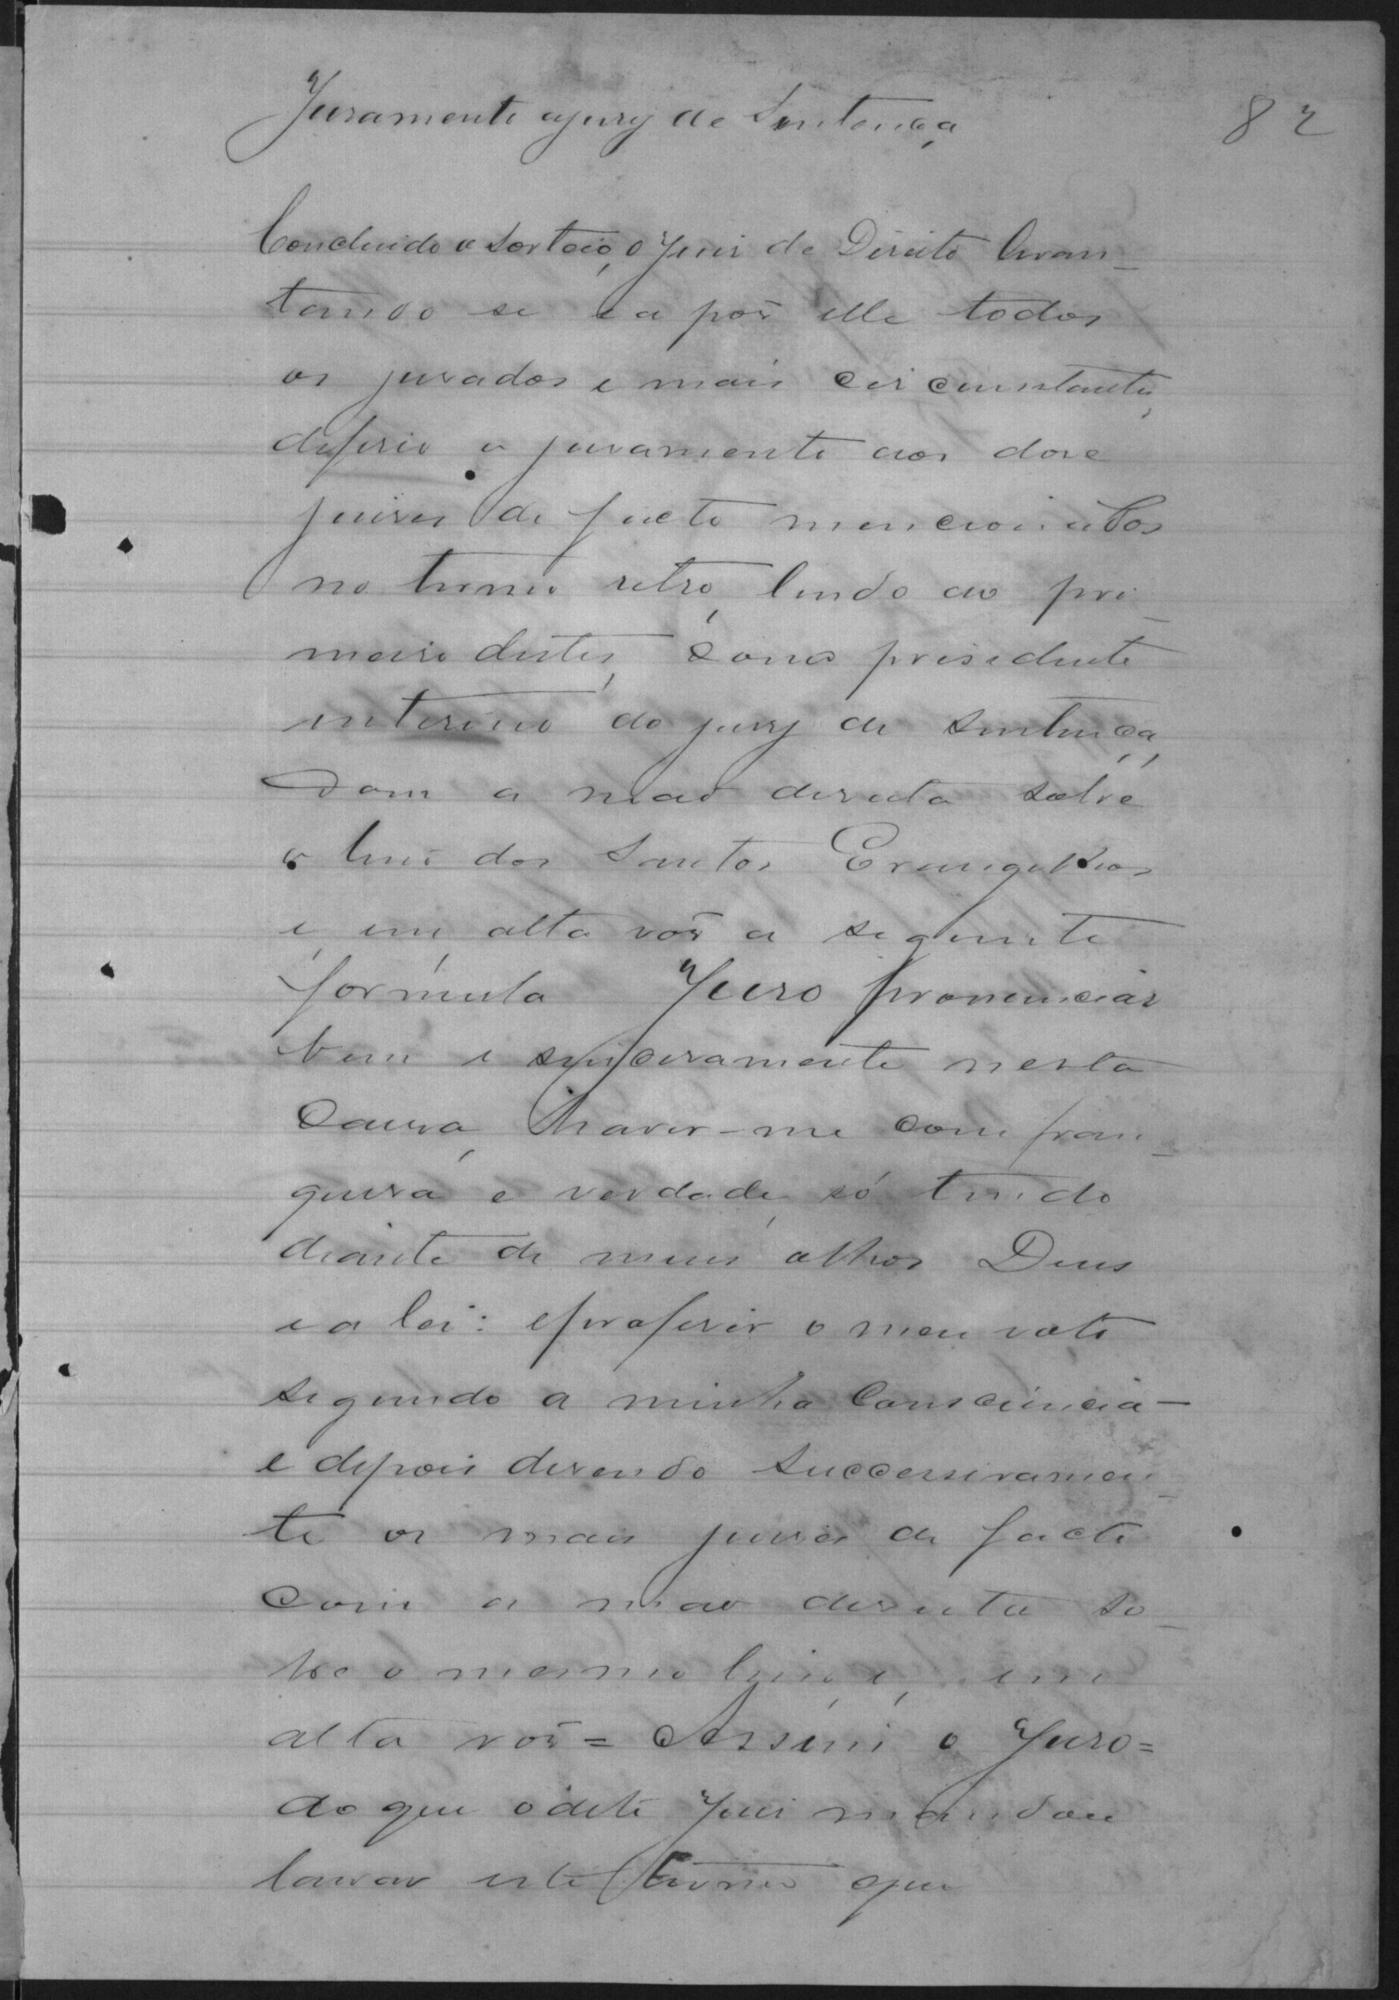 Juramento ao jury de Sentença
82
Concluido o sorteio, o Juiz de Direito levan-
tando se e a pós elle todos
os jurados e mais circumstantes,
deferio o juramento aos doze
juizes de facto mencionados
no termo retro, lendo ao pri-
meiro destes, como presidente
interino do jury de sentença,
com a mão direita sobre
o livro dos Santos Evangelhos
e, em alta vóz a seguinte
formula Juro pronunciar
bem e sinceramente nesta
causa, haver-me com fran-
queza e verdade, só tendo
diante de meus olhos Deus
e a lei: e proferir o meu voto
segundo a minha consciencia -
e depois dizendo successivamen-
te os mais juizes de facto
com a mão direita so-
bre o mesmo livro e, em
alta vóz = Assim o Juro =
do que o dito Juiz mandou
lavrar este termo que